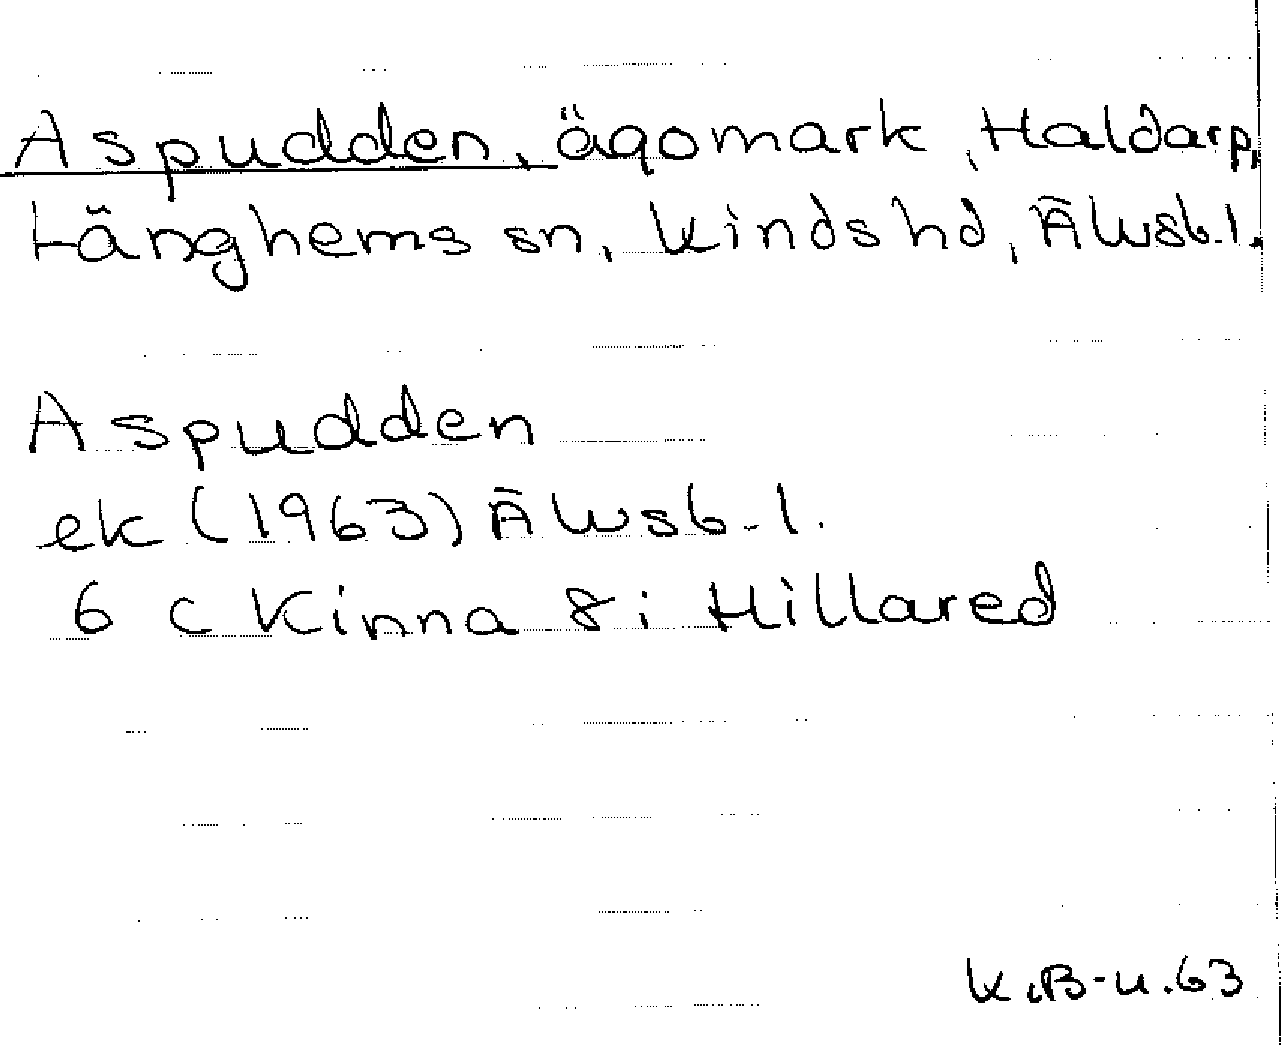 Aspudden, ägomark, Haldarp,
Länghems sn, Kinds hd, Älvsb. l.
Aspudden
ek (1963) Älvsb. l.
6 C Kinna 8 i Hillared
K.B-u.63